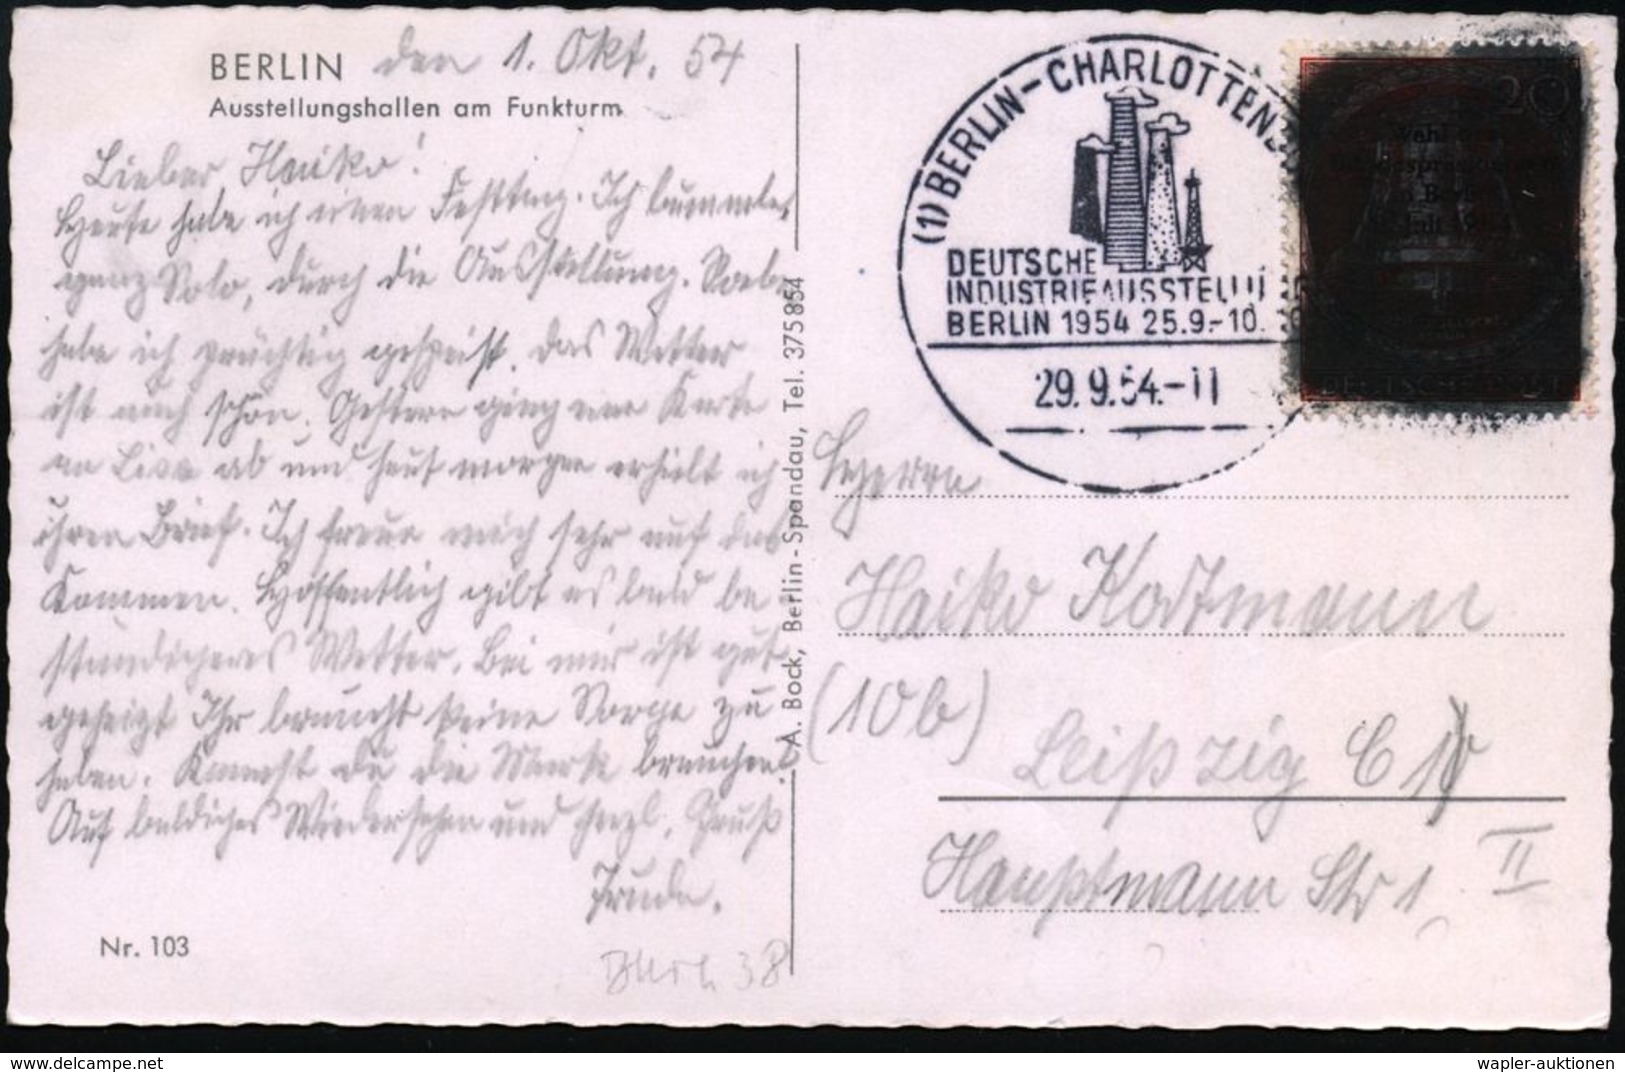 BERLIN den 1. Okt. 54
Ausstellungshallen am Funkturm
Lieber Heiko!
Heute habe ich einen Festtag. Ich bummle
ganz Solo, durch die Ausstellung. Soeben
habe ich prächtig gespeist. Das Wetter
ist auch schön. Gestern ging eine Karte
an ab und heut morgen erhielt ich
ihren Brief. Ich freue mich sehr auf das
Kommen. Hoffentlich gibt es bald be
ständigeres Wetter. Bei mir ist gut
geheizt Ihr braucht keine Sorge zu
haben. Kannst du die Mark brauchen?
Auf baldiges Wiedersehen und herzl. Gruß
Trude.
Nr. 103
38
A. Bock, Berlin-Spandau, Tel. 375854
(1) BERLIN-CHARLOTTENB
DEUTSCHE
INDUSTRIEAUSSTELLU
BERLIN 1954 25.9.-10.
29.9.54.-11
20
Wahl des
Bundespräsidenten
in Berlin
Juli 1954
DEUTSCHE POST
Herrn
Heiko Kortmann
(10b)
Leipzig C 1
Hauptmann Str 1 II
wapler-auktionen